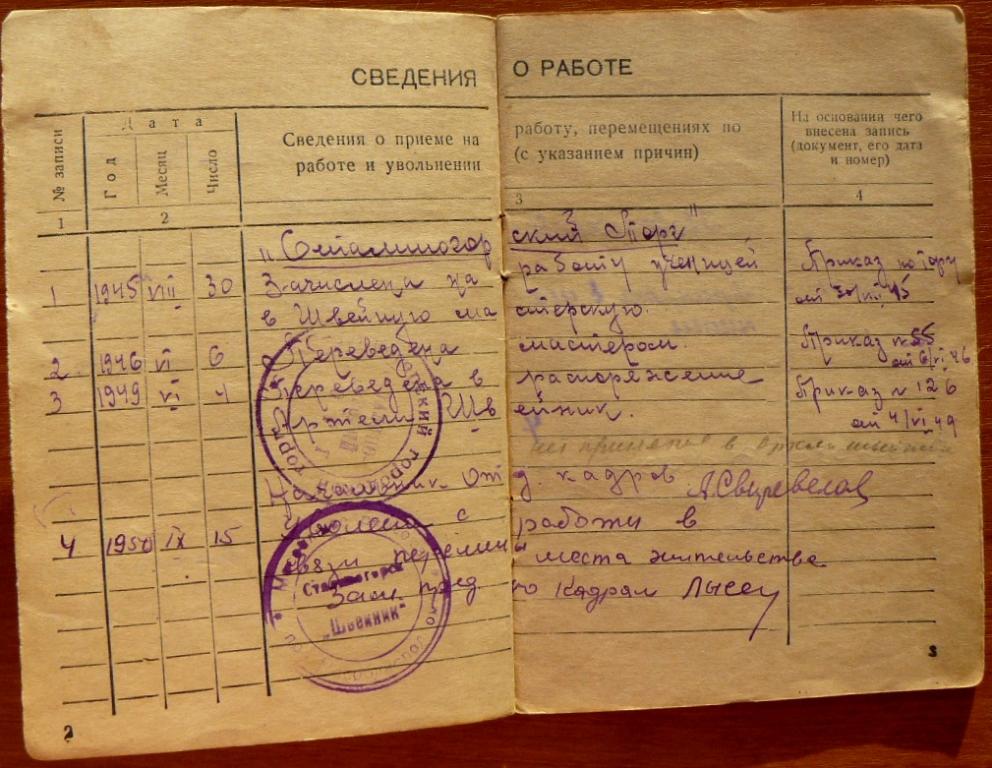 СВЕДЕНИЯ О РАБОТЕ
№ записи
Дата
Год
Месяц
Число
Сведения о приеме на работу, перемещениях по
работе и увольнении (с указанием причин)
На основании чего
внесена запись
(документ, его дата
и номер)
1 2 3 4
"Сталиногорский Торг"
1 1945 VIII 30 Зачислена на работу ученицей Приказ по Торгу
в Швейную мастерскую. от 30/VIII 45
2 1946 VI 6 Переведена мастером. Приказ № 55
от 6/VI 46
3 1949 VI 4 Переведена в распоряжение Приказ № 126
Артели Швейник. от 4/VI 49
принята в Артель
Начальник Отд. кадров
4 1950 IX 15 Уволена с работы в
связи перемены места жительства
Зам. пред по Кадрам
Сталиногорск
"Швейник"
2
3